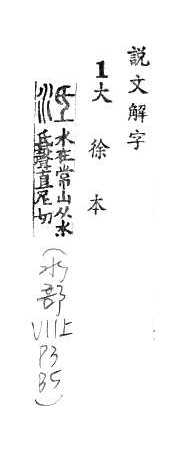 説文解字
1大徐本
泜 水在常山从水
氐聲直尼切
(水部
VIII上
P3
B5)